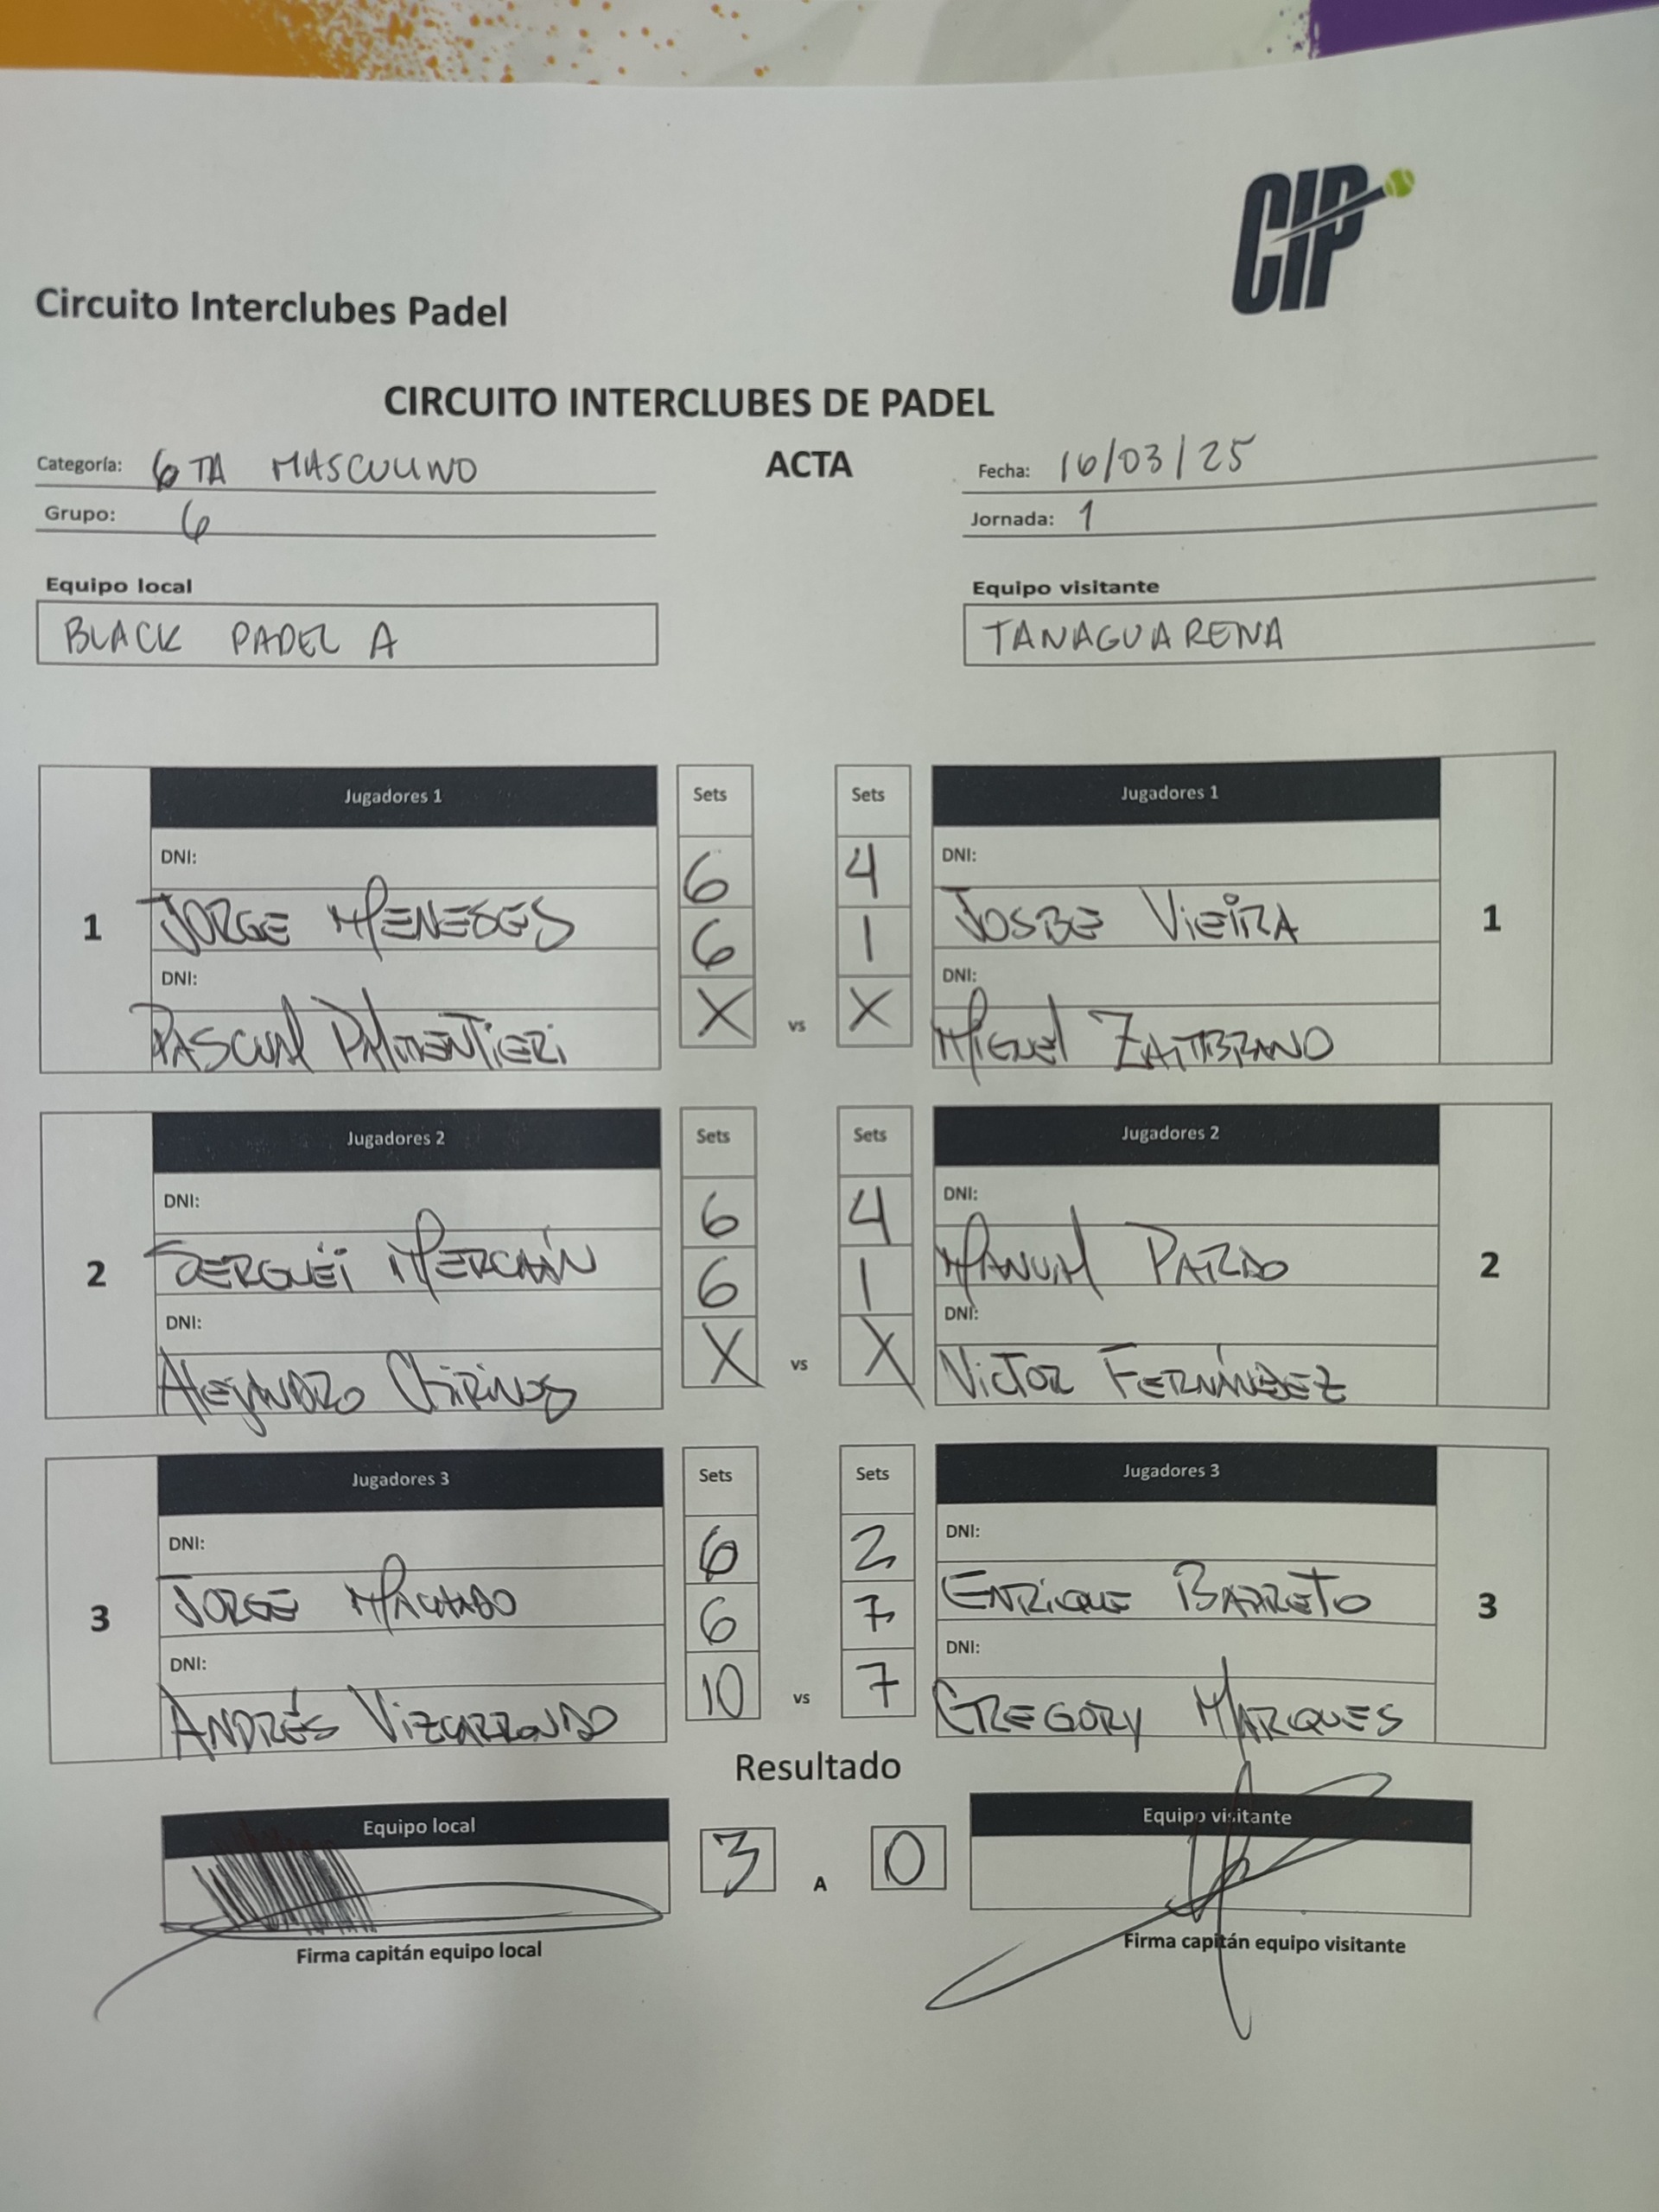 CIP
Circuito Interclubes Padel
CIRCUITO INTERCLUBES DE PADEL
Categoría: 6TA MASCULINO
ACTA
Fecha: 16/03/25
Grupo: 6
Jornada: 1
Equipo local
Equipo visitante
BLACK PADEL A
TANAGUARENA
Jugadores 1 Sets Sets Jugadores 1
DNI: 6 4 DNI:
1 JORGE MENESES 6 1 JOSBE VIEIRA 1
DNI: X vs X DNI:
PASCUAL PALMENTIERI MIGUEL ZAMBRANO
Jugadores 2 Sets Sets Jugadores 2
DNI: 6 4 DNI:
2 SERGUEÏ MERCHÁN 6 1 MANUAL PARDO 2
DNI: X vs X DNI:
ALEJANDRO CHIRINOS VICTOR FERNÁNDEZ
Jugadores 3 Sets Sets Jugadores 3
DNI: 6 2 DNI:
3 JORGE MACHADO 6 7 ENRIQUE BARRETO 3
DNI: 10 vs 7 DNI:
ANDRÉS VIZCARRONDO GREGORY MARQUES
Resultado
Equipo local 3 A 0 Equipo visitante
Firma capitán equipo local
Firma capitán equipo visitante